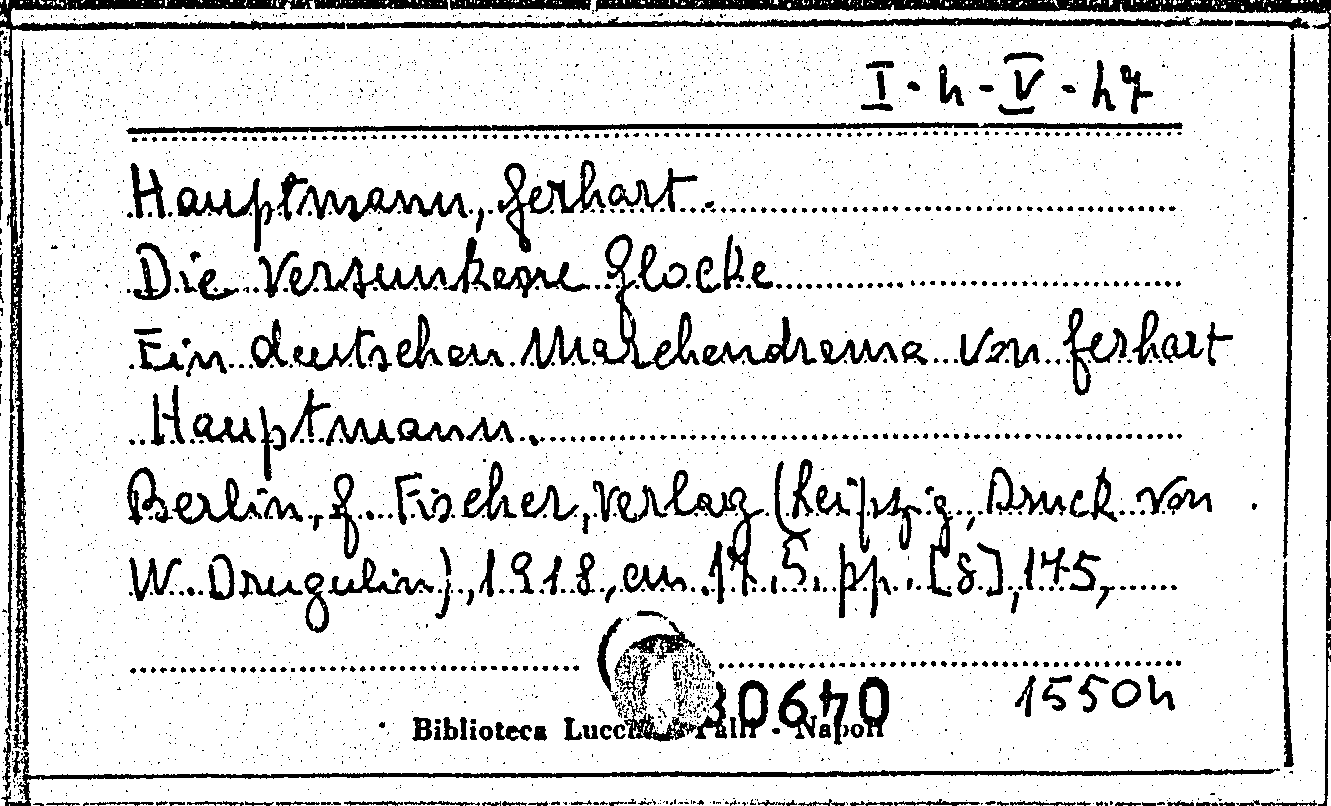 I-4-V-47
Hauptmann, Gerhart.
Die versunkene Glocke
Ein deutschen Marchendrama von Gerhart
Hauptmann.
Berlin, G. Fischer, Verlag (Leipzig, Druck von
W. Drugulin), 1918, cm. 17.5. pp. [8], 175,
15504
Biblioteca Palli - Napoli